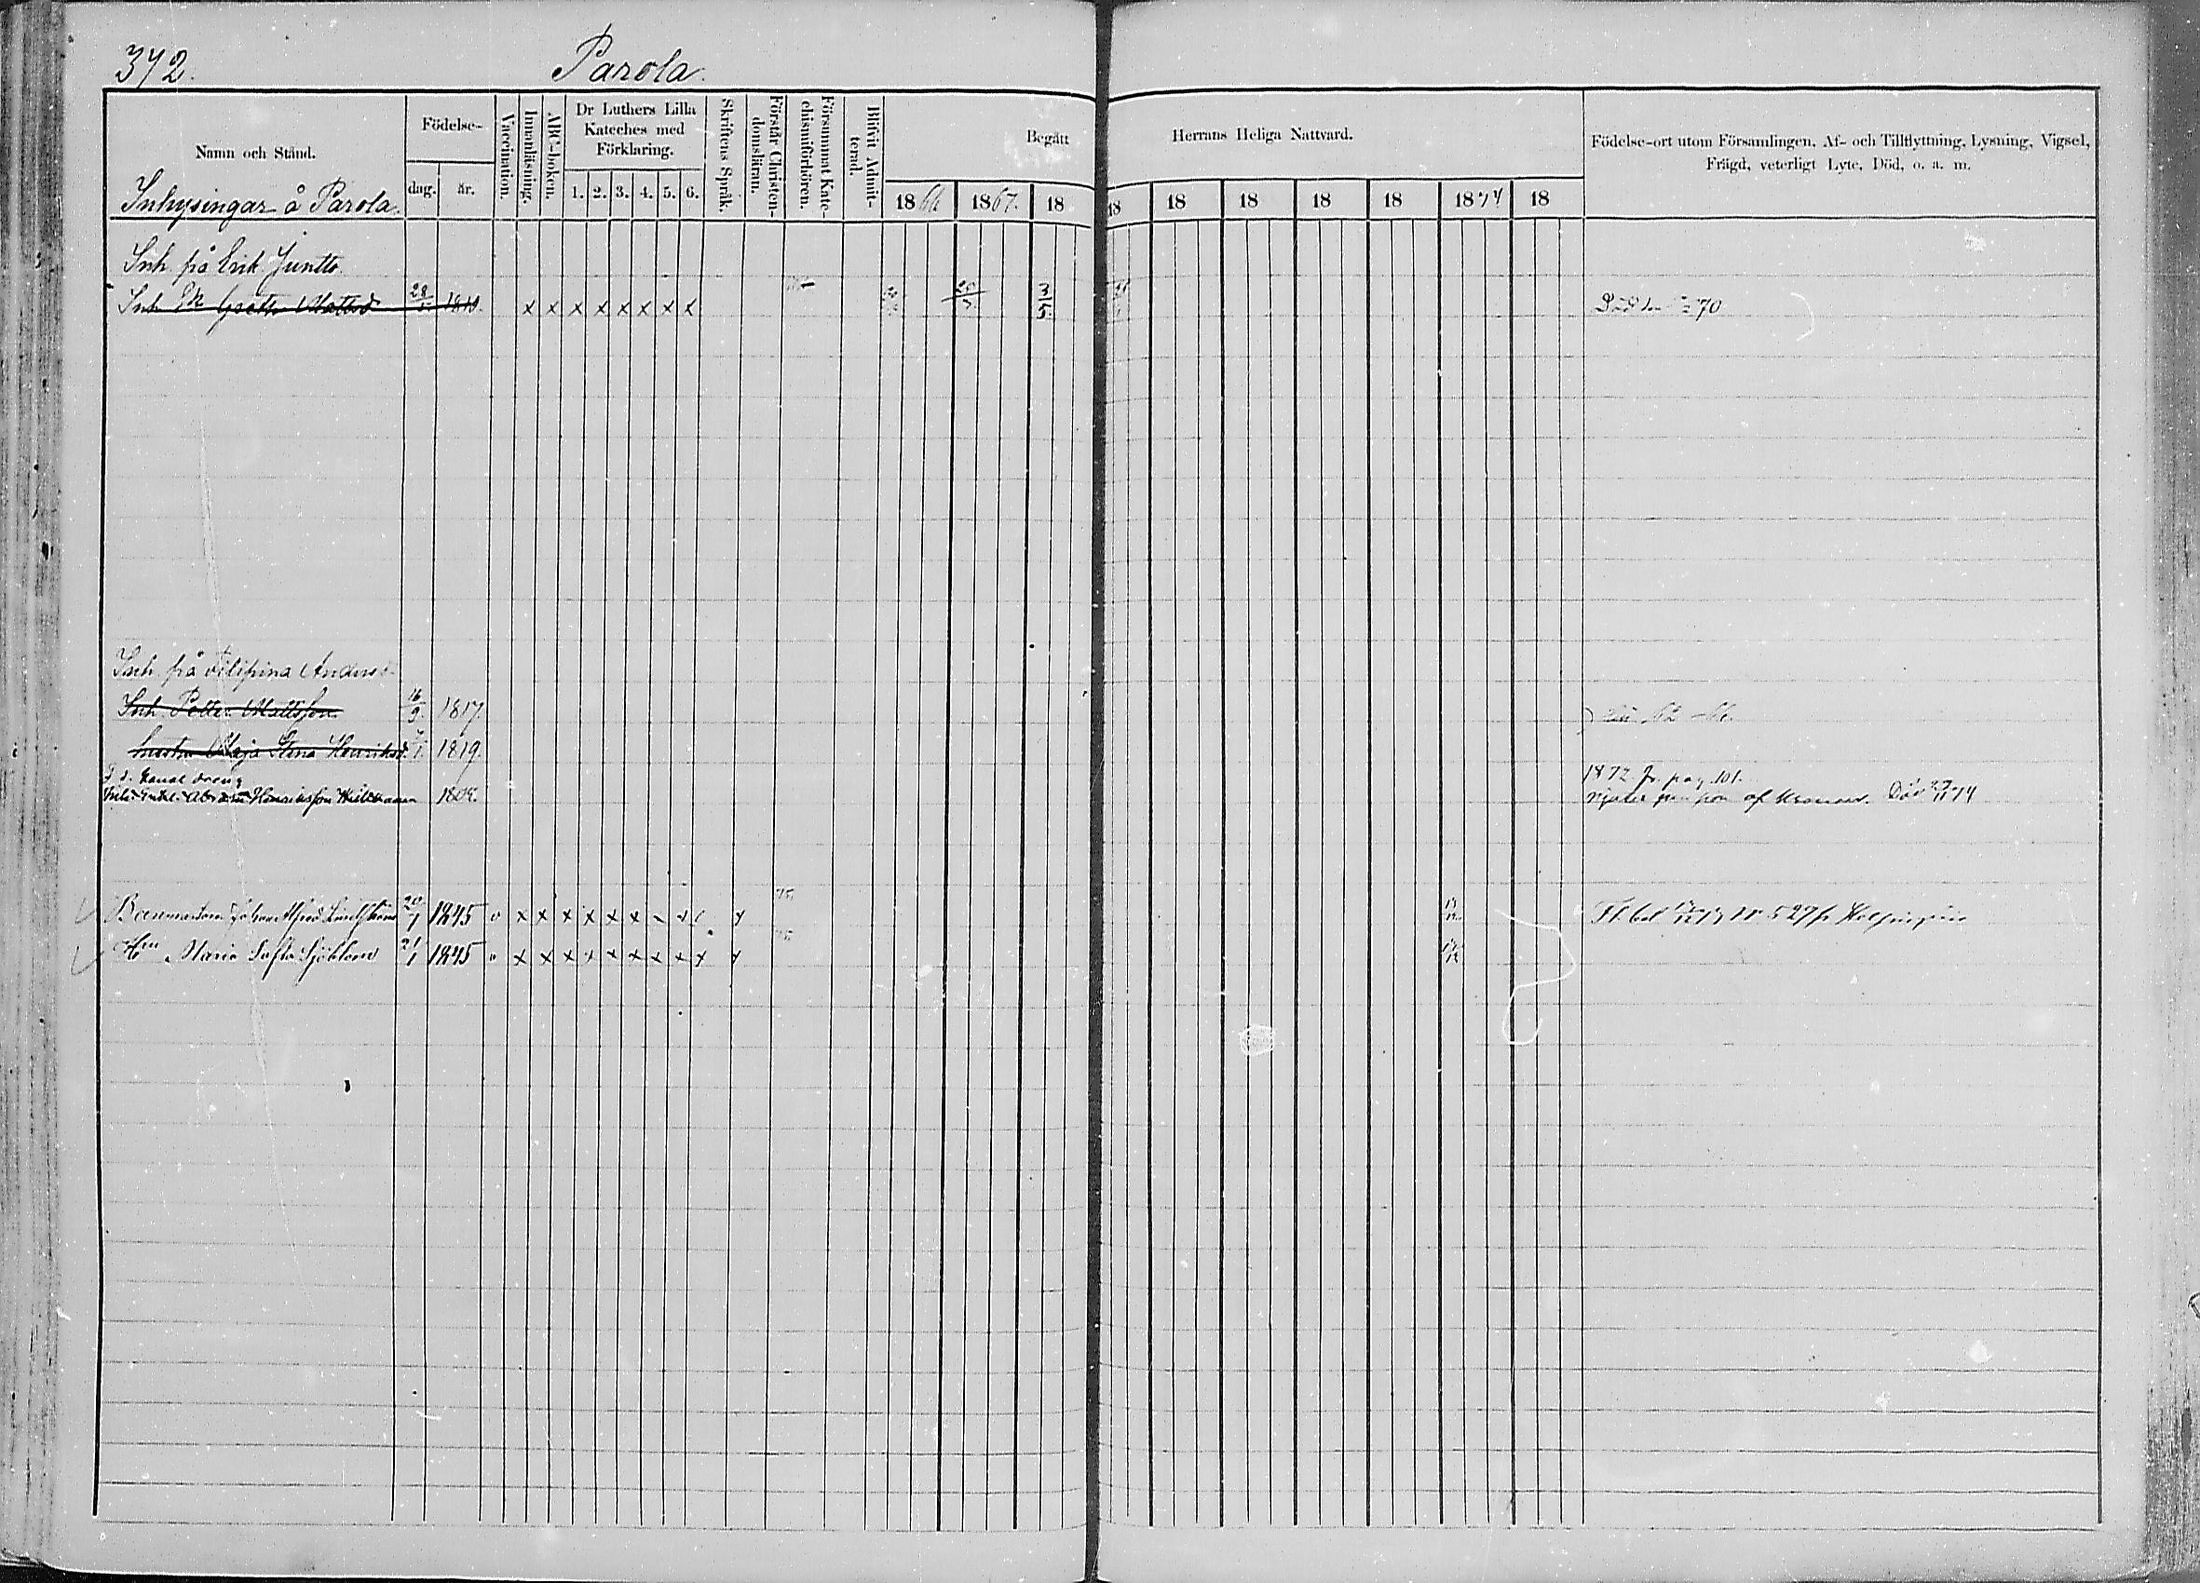 372.
Parola.
Namn och Stånd.
Födelse-
dag.
år.
Vaccination.
Innanläsning.
ABC-boken.
Dr Luthers Lilla
Kateches med
Förklaring.
1. 2. 3. 4. 5. 6.
Skriftens Språk.
Förstår Christen-
domsläran.
Försummat Kate-
chismiförhören.
Blifvit Admit-
terad.
Begått
Herrans Heliga Nattvard.
1866 1867. 18 18 18 18 18 18 1874 18
Födelse-ort utom Församlingen, Af- och Tillflyttning, Lysning, Vigsel,
Frägd, veterligt Lyte, Död, o. a. m.
Inhysingar å Parola.
Inh. på Erik Juntto.
Inh. Greta Mattsd 28 x x x x x x x x 3/5 Död den 70
Inh. på Filipina Andersd.
Inh. Petter Mattsson 16/9. 1817.
hustru Maja Stina Henriksd. 1819.
F. d. Kanal dreng 1872 fr. pag. 101.
Inh. Enkl. Abram Henriksson 1809. af Kronan. Död 74
Johan Alfred 20/1 1845 x x x x x x
Hu Maria Sofia Sjöblom 21/1 1845 x x x x x x x x x